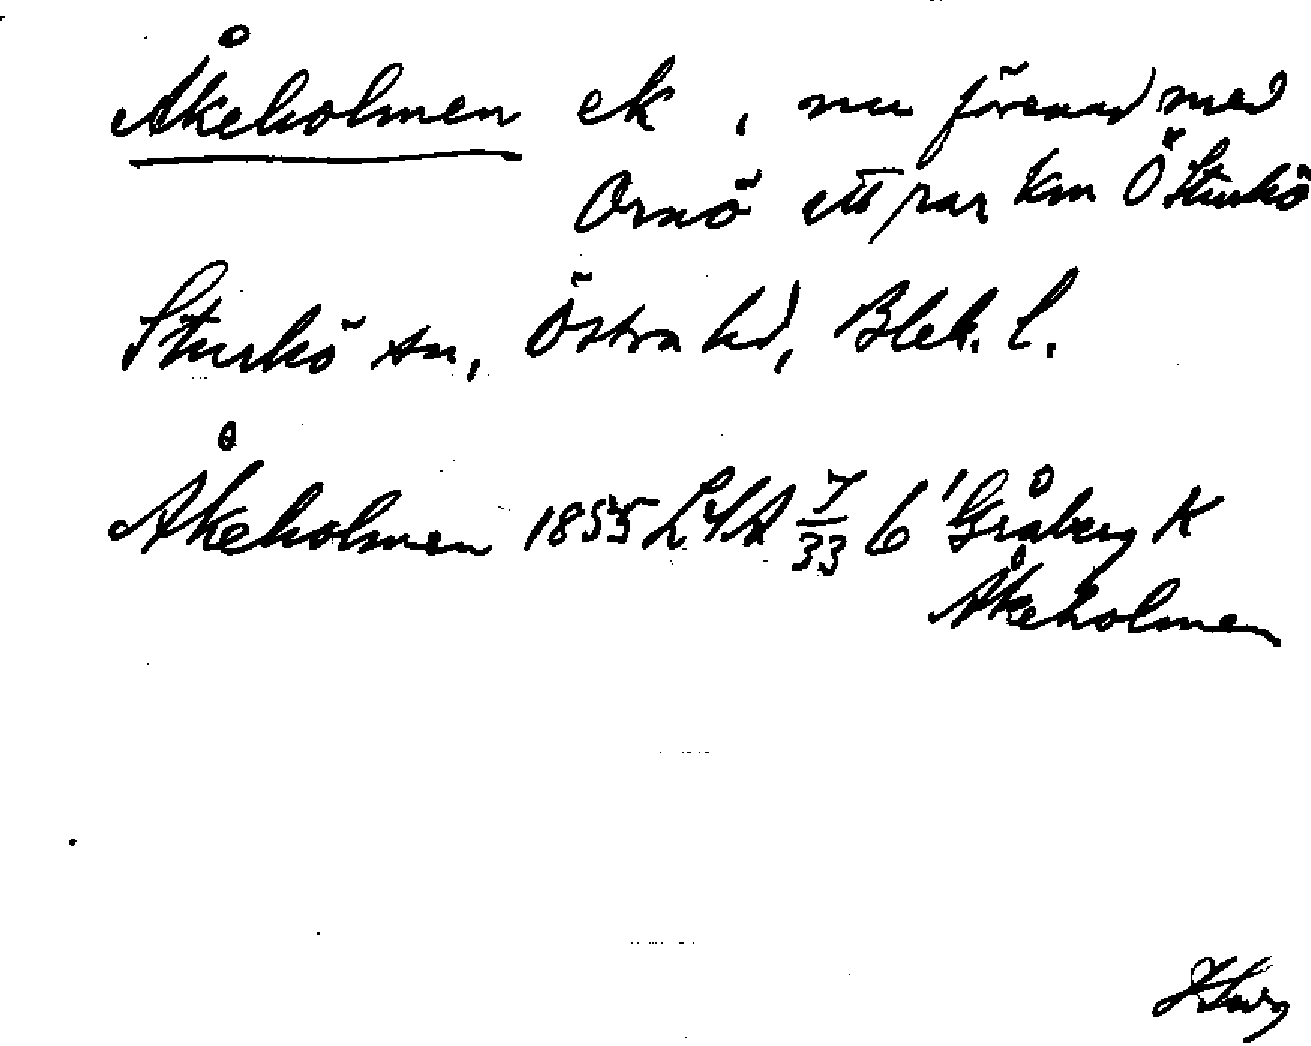 Åkeholmen ek , nu förenad med
Ornö ett par km Ö Sturkö
Sturkö sn, Östra hd, Blek. l.
Åkeholmen 1855 LSA 7/33 6 'Gråberg K
Åkeholmen